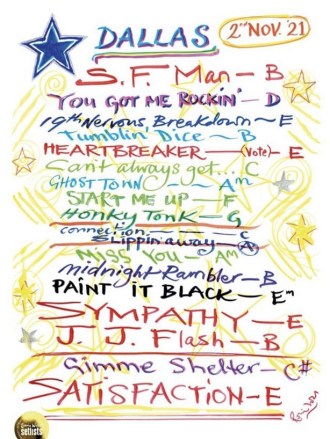 DALLAS
2nd NOV. '21
S.F. Man — B
YOU GOT ME ROCKIN' — D
19th Nervous Breakdown ~ E
Tumblin' Dice ~ B
HEARTBREAKER — (Vote) — E
Can't always get... C
GHOST TOWN ~ Am
START ME UP — F
Honky Tonk — G
connection — C
Slippin' away — A
MISS YOU — Am
midnight Rambler — B
PAINT IT BLACK — Em
SYMPATHY — E
J. J. Flash — B
Gimme Shelter — C#
SATISFACTION — E
setlists